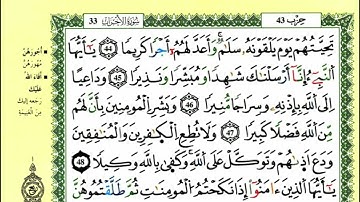 حزب 43
سورة الأحزاب
33
تَحِيَّتُهُمْ يَوْمَ يَلْقَوْنَهُۥ سَلَٰمٌ وَأَعَدَّ لَهُمْ أَجْرًا كَرِيمًا 44 يَٰٓأَيُّهَا
ٱلنَّبِيُّ إِنَّآ أَرْسَلْنَٰكَ شَٰهِدًا وَمُبَشِّرًا وَنَذِيرًا 45 وَدَاعِيًا
إِلَى ٱللَّهِ بِإِذْنِهِۦ وَسِرَاجًا مُّنِيرًا 46 وَبَشِّرِ ٱلْمُؤْمِنِينَ بِأَنَّ لَهُم
مِّنَ ٱللَّهِ فَضْلًا كَبِيرًا 47 وَلَا تُطِعِ ٱلْكَٰفِرِينَ وَٱلْمُنَٰفِقِينَ
وَدَعْ أَذَىٰهُمْ وَتَوَكَّلْ عَلَى ٱللَّهِ وَكَفَىٰ بِٱللَّهِ وَكِيلًا 48
يَٰٓأَيُّهَا ٱلَّذِينَ ءَامَنُوٓا۟ إِذَا نَكَحْتُمُ ٱلْمُؤْمِنَٰتِ ثُمَّ طَلَّقْتُمُوهُنَّ
أجورهن
مهورهن
أفاء الله
عليك
رجعه إليك
من الغنيمة